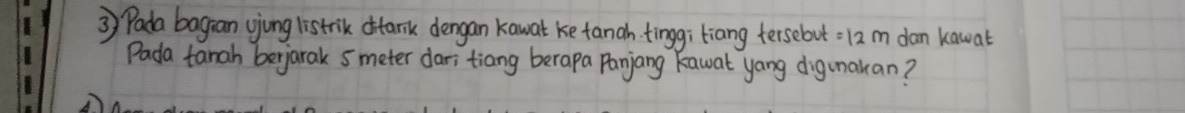 3) Pada bagian ujung listrik ditarik dengan kawat ke tanah. tinggi tiang tersebut = 12 m dan kawat
Pada tanah berjarak 5 meter dari tiang berapa Panjang kawat yang digunakan?